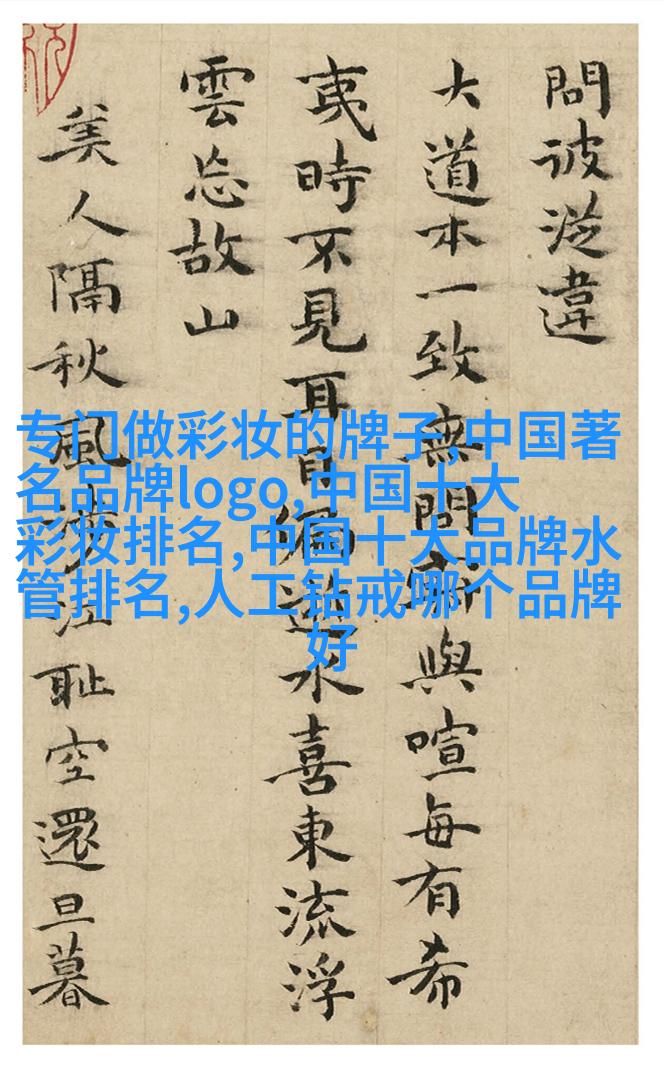 問彼從違
大道本一致無問與喧每有希
夷時不見耳目偏水喜東流浮
雲忘故山
美人隔秋風江耻空還旦暮
专门做彩妆的牌子,中国著
名品牌logo,中国十大
彩妆排名,中国十大品牌水
管排名,人工钻戒哪个品牌
好